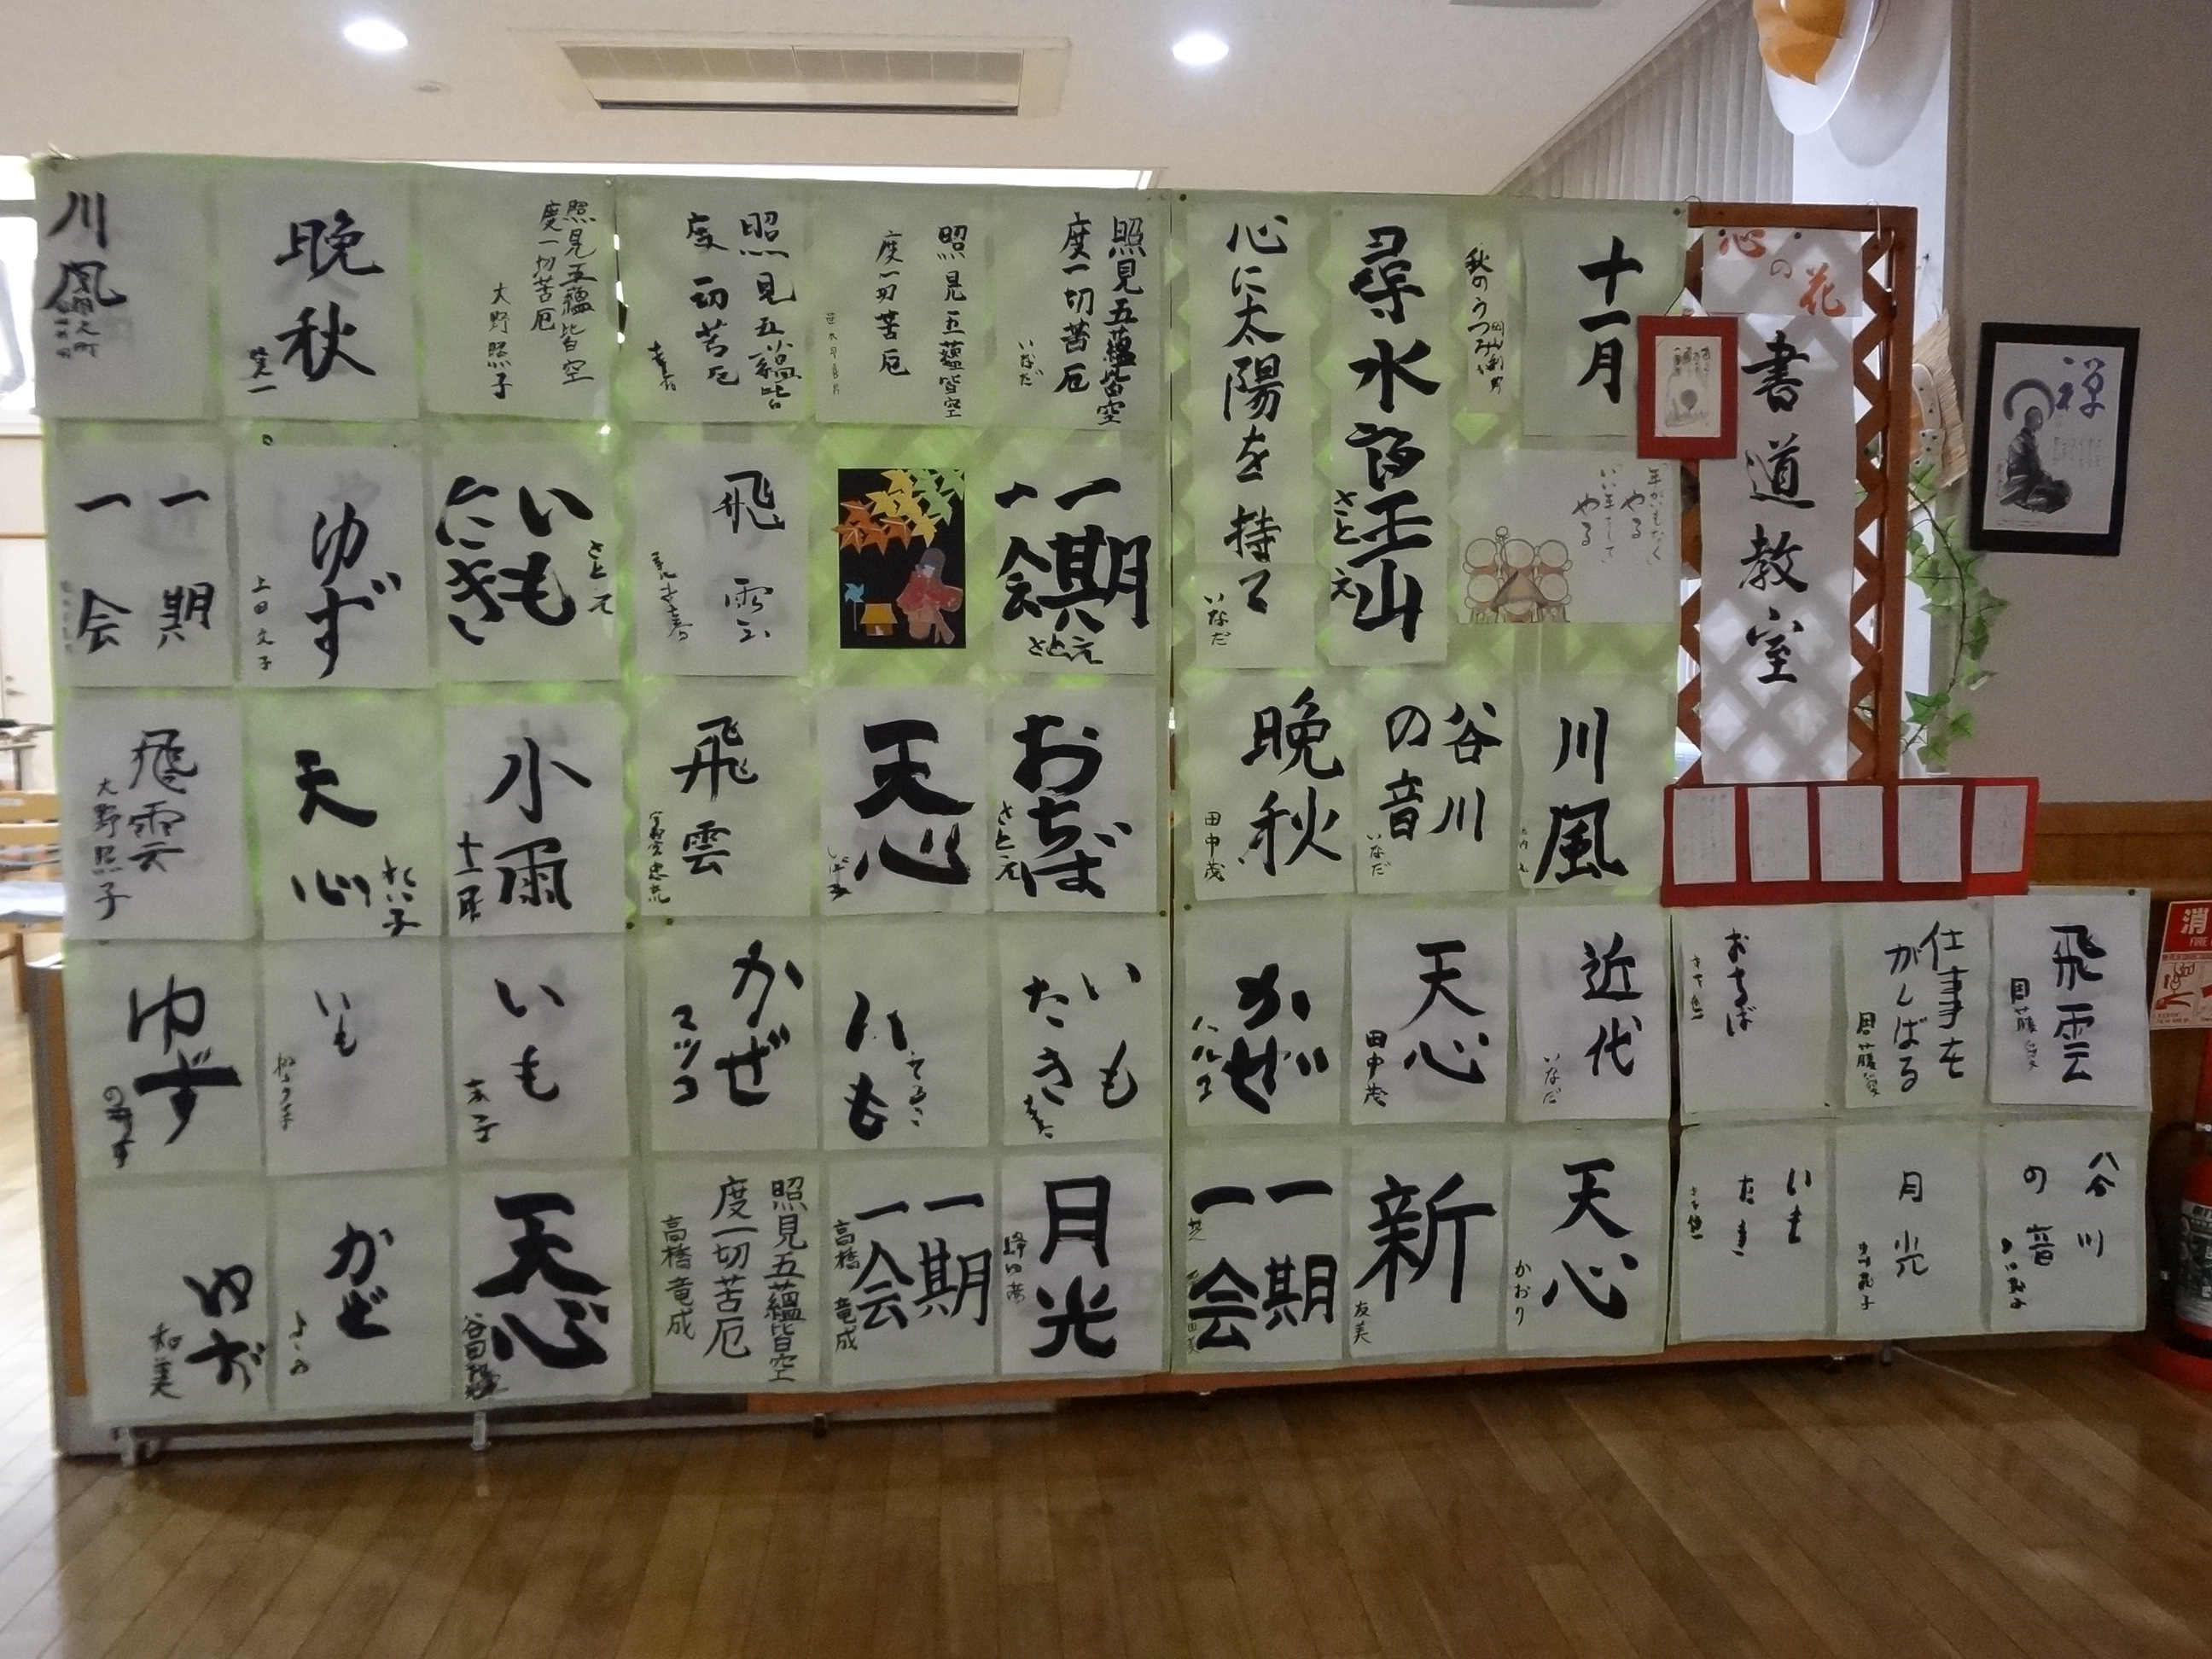 心の花
書道教室
禅
十一月
秋のうつみ
尋水訪玉山
さと え
心に太陽を持て
いなだ
照見五蘊皆空
度一切苦厄
いなだ
照見五蘊皆空
度一切苦厄
照見五蘊皆
度一切苦厄
照見五蘊皆空
度一切苦厄
大野照子
晩秋
川風
年がいもなく
やる
いい年して
やる
一期
一会
さとえ
飛雲
いも
にき
さとえ
ゆず
上田文子
一期
一会
川風
谷川
の音
いなだ
晩秋
田中茂
おちば
さと え
天心
飛雲
小雨
天心
れい子
飛雲
大野照子
飛雲
仕事を
がんばる
おちば
近代
いなだ
天心
田中茂
かぜ
ハルコ
いも
たき
いも
かぜ
マツコ
いも
いも
ゆず
谷川
の音
月光
いも
たき
天心
かおり
新
友美
一期
一会
月光
一期
一会
高橋竜成
照見五蘊皆空
度一切苦厄
高橋竜成
天心
かぜ
ゆず
和美
消
FIRE